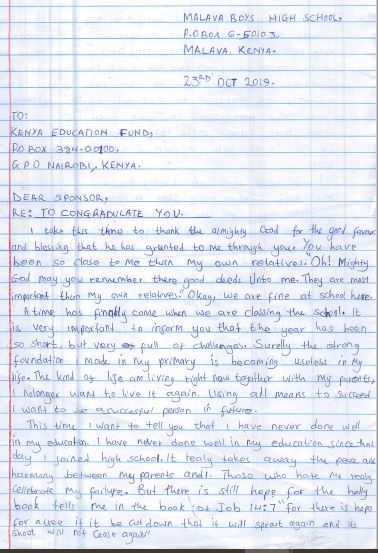 MALAVA BOYS HIGH SCHOOL,
P.O BOX 6-50103,
MALAVA, KENYA.
23RD OCT 2019.
TO:
KENYA EDUCATION FUND,
P.O BOX 324-00100,
G.P.O NAIROBI, KENYA.
DEAR SPONSOR,
RE: TO CONGRADULATE YOU.
I take this time to thank the almighty God for the good favour
and blessing that he has granted to me through you. You have
been so close to me than my own relatives. "Oh! Mighty
God may you remember there good deeds Unto me. They are most
important than my own relatives. Okay, we are fine at school here.
A time has finally come when we are classing the school. It
is very important to inform you that the year has been
so short, but very full of challenges. Surelly the strong
foundation made in my primary is becoming useless in my
life. The kind of life am living right now together with my parents,
I nolonger want to live it again. Using all means to succeed
I want to be a successful person in future.
This time I want to tell you that I have never done well
in my education. I have never done well in my education since that
day I joined high school. It realy takes away the peace and
harmony between my parents and I. Those who hate me realy
celebrate my failure. But there is still hope for the holly
book tells me in the book of Job 14:7 "for there is hope
for a tree if it be cut down that it will sprout again and its
shoot will not cease again"